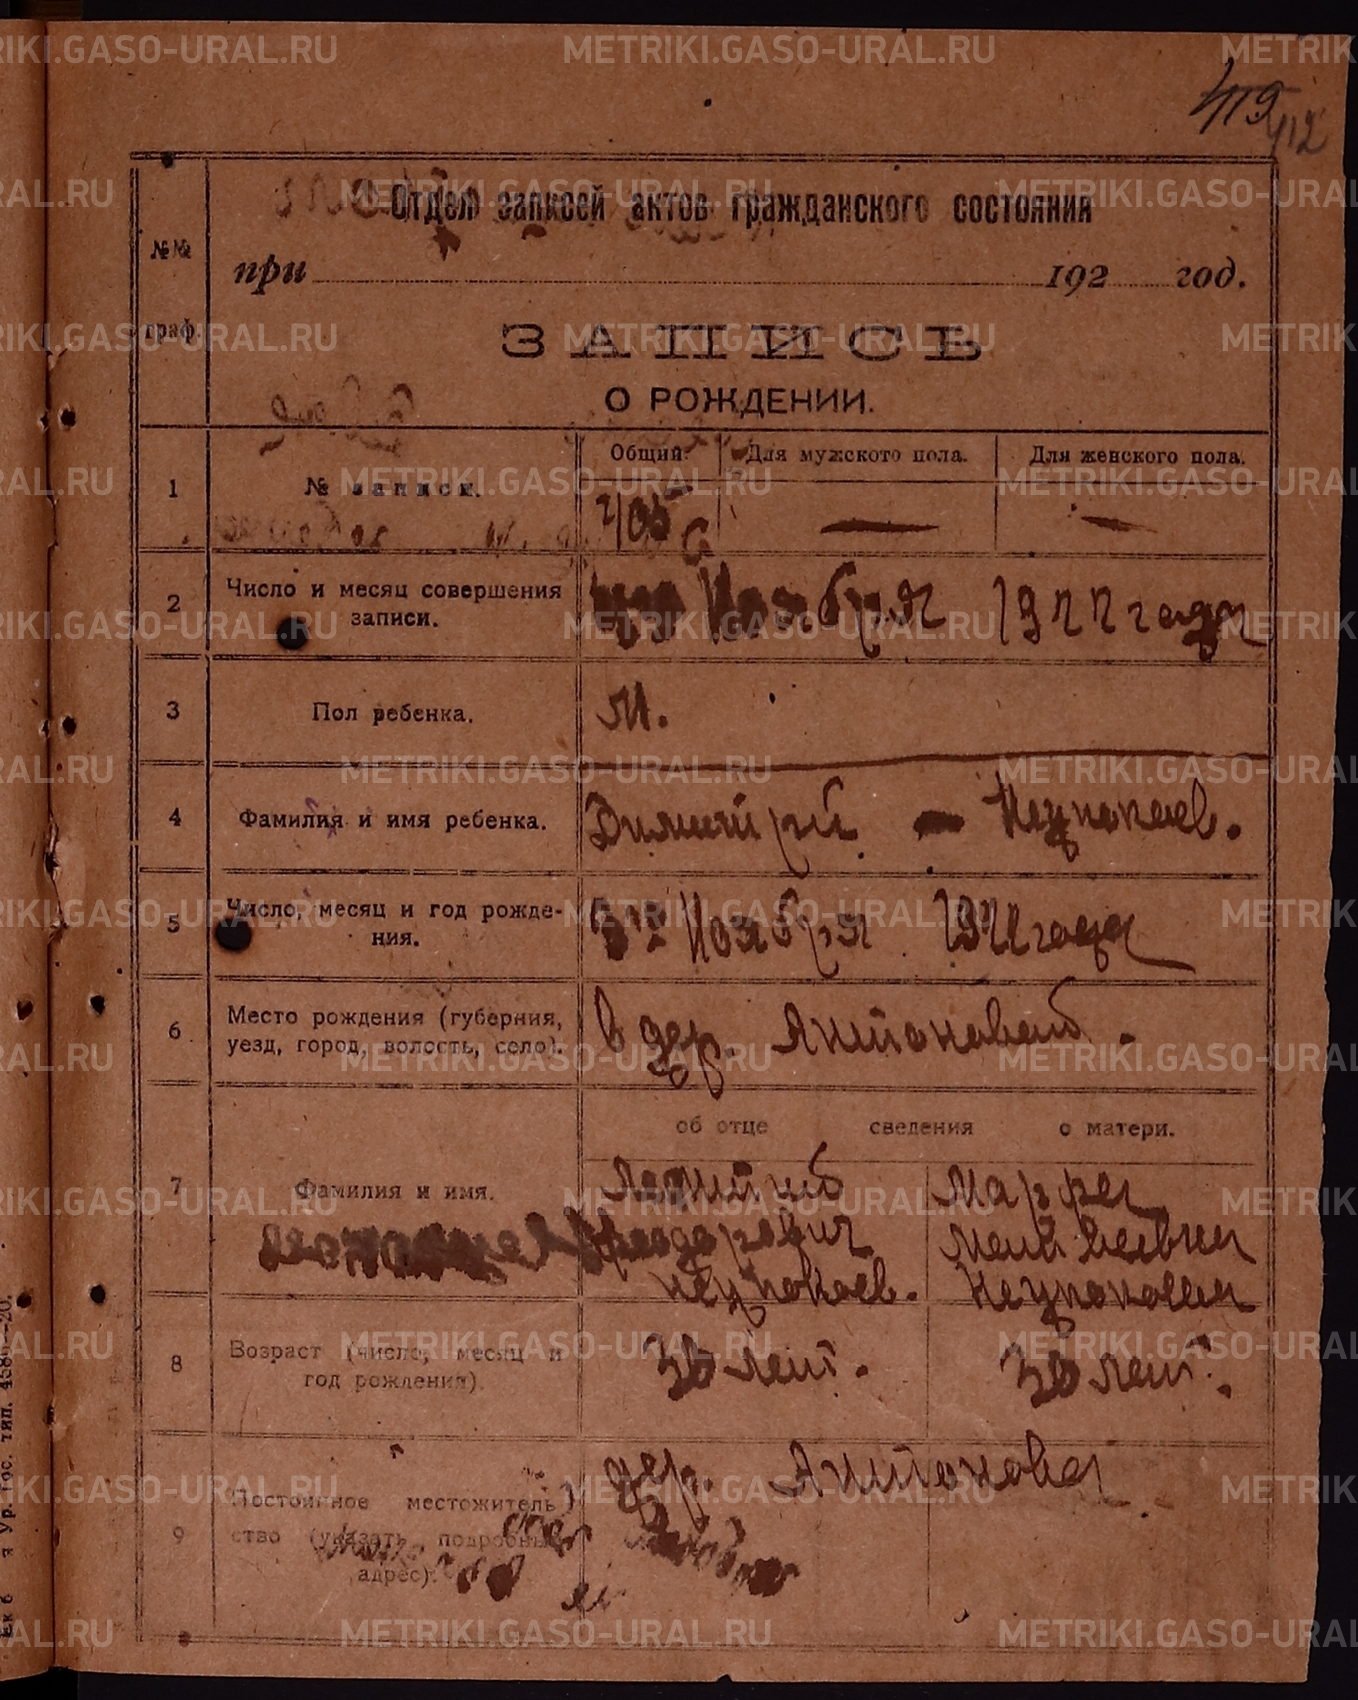 METRIKI.GASO-URAL.RU
419
412
Отдел записей актов гражданского состояния
№№
граф.
при 192 год.
ЗАПИСЬ
О РОЖДЕНИИ.
1
№ записи.
Общий.
Для мужского пола.
Для женского пола.
2
Число и месяц совершения
записи.
Ноября 1922 года
3
Пол ребенка.
М.
4
Фамилия и имя ребенка.
Димитрий — Неупокоев.
5
Число, месяц и год рожде-
ния.
Ноября 1922 года
6
Место рождения (губерния,
уезд, город, волость, село).
в дер. Антоновой.
об отце сведения о матери.
7
Фамилия и имя.
Феодорович
Неупокоев.
Марфа
Матвеевна
Неупокоева
8
Возраст (число, месяц и
год рождения)
36 лет.
36 лет.
9
Постоянное местожитель-
ство (указать подробный
адрес).
дер. Антонова